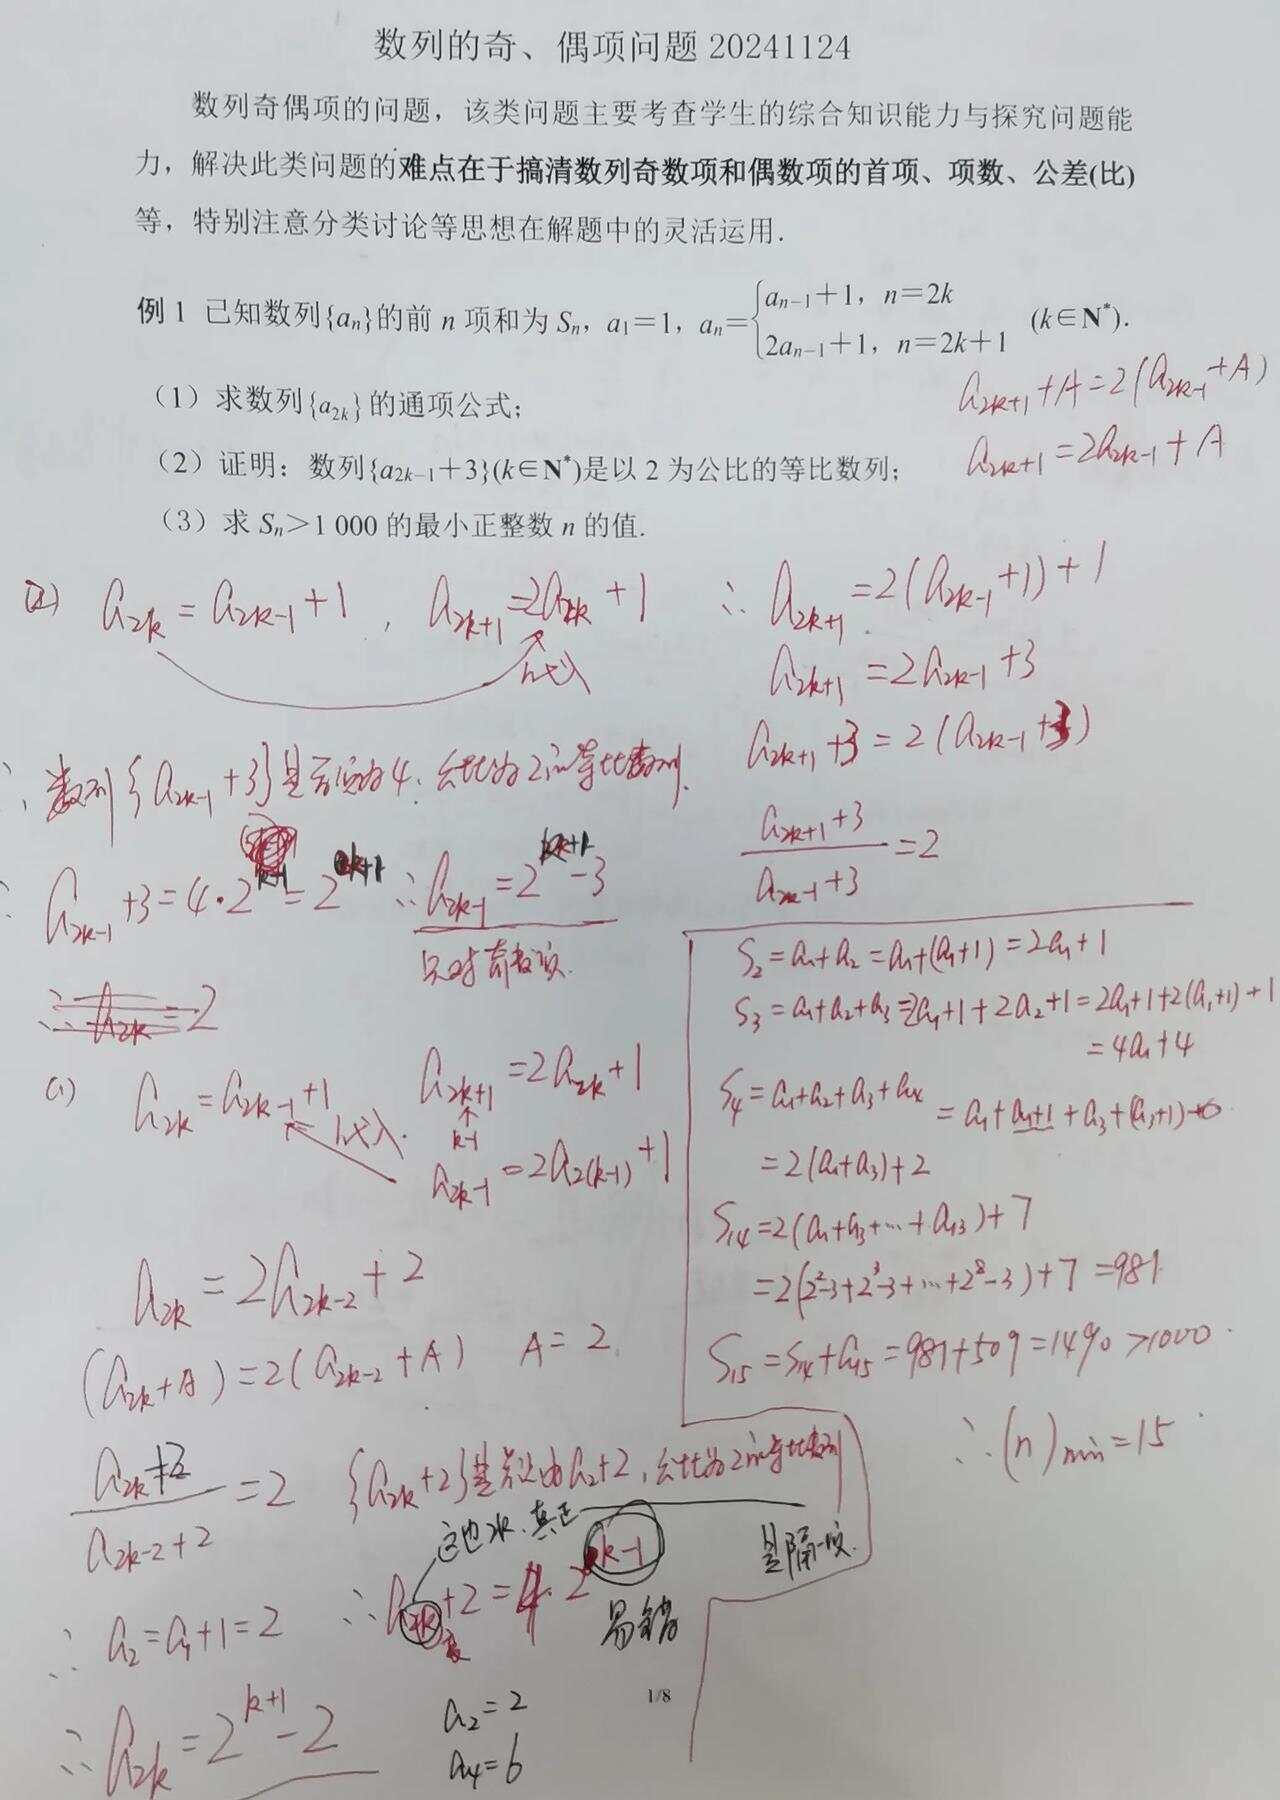 数列的奇、偶项问题 20241124
数列奇偶项的问题，该类问题主要考查学生的综合知识能力与探究问题能
力，解决此类问题的难点在于搞清数列奇数项和偶数项的首项、项数、公差(比)
等，特别注意分类讨论等思想在解题中的灵活运用.
例 1 已知数列{aₙ}的前 n 项和为 Sₙ，a₁=1，aₙ={aₙ₋₁+1，n=2k
2aₙ₋₁+1，n=2k+1 (k∈N*).
（1）求数列{a₂ₖ}的通项公式；
a₂ₖ₊₁+A=2(a₂ₖ₋₁+A)
（2）证明：数列{a₂ₖ₋₁+3}(k∈N*)是以 2 为公比的等比数列；
a₂ₖ₊₁=2a₂ₖ₋₁+A
（3）求 Sₙ>1 000 的最小正整数 n 的值.
(2) a₂ₖ=a₂ₖ₋₁+1, a₂ₖ₊₁=2a₂ₖ+1
代入
∴ a₂ₖ₊₁=2(a₂ₖ₋₁+1)+1
a₂ₖ₊₁=2a₂ₖ₋₁+3
a₂ₖ₊₁+3=2(a₂ₖ₋₁+3)
(a₂ₖ₊₁+3)/(a₂ₖ₋₁+3)=2
∴ 数列{a₂ₖ₋₁+3}是首项为4,公比为2的等比数列.
∴ a₂ₖ₋₁+3=4·2^(k-1)=2^(k+1) ∴a₂ₖ₋₁=2^(k+1)-3
只对奇数项.
∴ a₂ₖ=2
(1) a₂ₖ=a₂ₖ₋₁+1 a₂ₖ₊₁=2a₂ₖ+1
代入.
k-1
a₂ₖ₋₁=2a₂₍ₖ₋₁₎+1
a₂ₖ=2a₂ₖ₋₂+2
(a₂ₖ+A)=2(a₂ₖ₋₂+A) A=2
(a₂ₖ+2)/(a₂ₖ₋₂+2)=2 {a₂ₖ+2}是首项为a₂+2,公比为2的等比数列
这也2k,真正
是隔一项.
∴ a₂=a₁+1=2 ∴a₂ₖ+2=4·2^(k-1)
易错
∴ a₂ₖ=2^(k+1)-2
a₂=2
a₄=6
S₂=a₁+a₂=a₁+(a₁+1)=2a₁+1
S₃=a₁+a₂+a₃=2a₁+1+2a₂+1=2a₁+1+2(a₁+1)+1
=4a₁+4
S₄=a₁+a₂+a₃+a₄=a₁+a₁+1+a₃+(a₃+1)
=2(a₁+a₃)+2
S₁₄=2(a₁+a₃+…+a₁₃)+7
=2(2²-3+2³-3+…+2⁸-3)+7=981
S₁₅=S₁₄+a₁₅=981+509=1490>1000.
∴(n)min=15
1/8